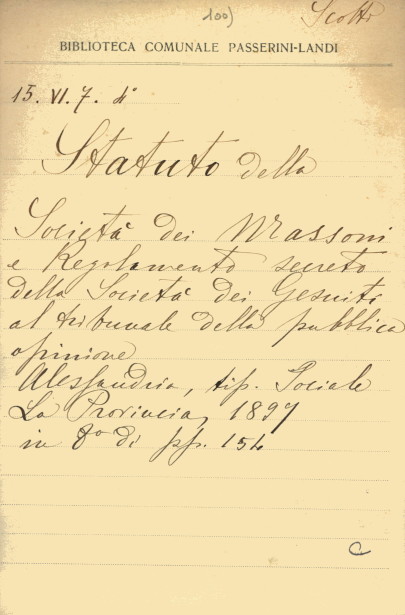 100)
Scotti
BIBLIOTECA COMUNALE PASSERINI-LANDI
15. VI. 7. 4°
Statuto della
Società dei Massoni
e Regolamento secreto
della Società dei Gesuiti
al tribunale della pubblica
opinione
Alessandria, tip. Sociale
La Provincia, 1897
in 8° di pp. 154
C